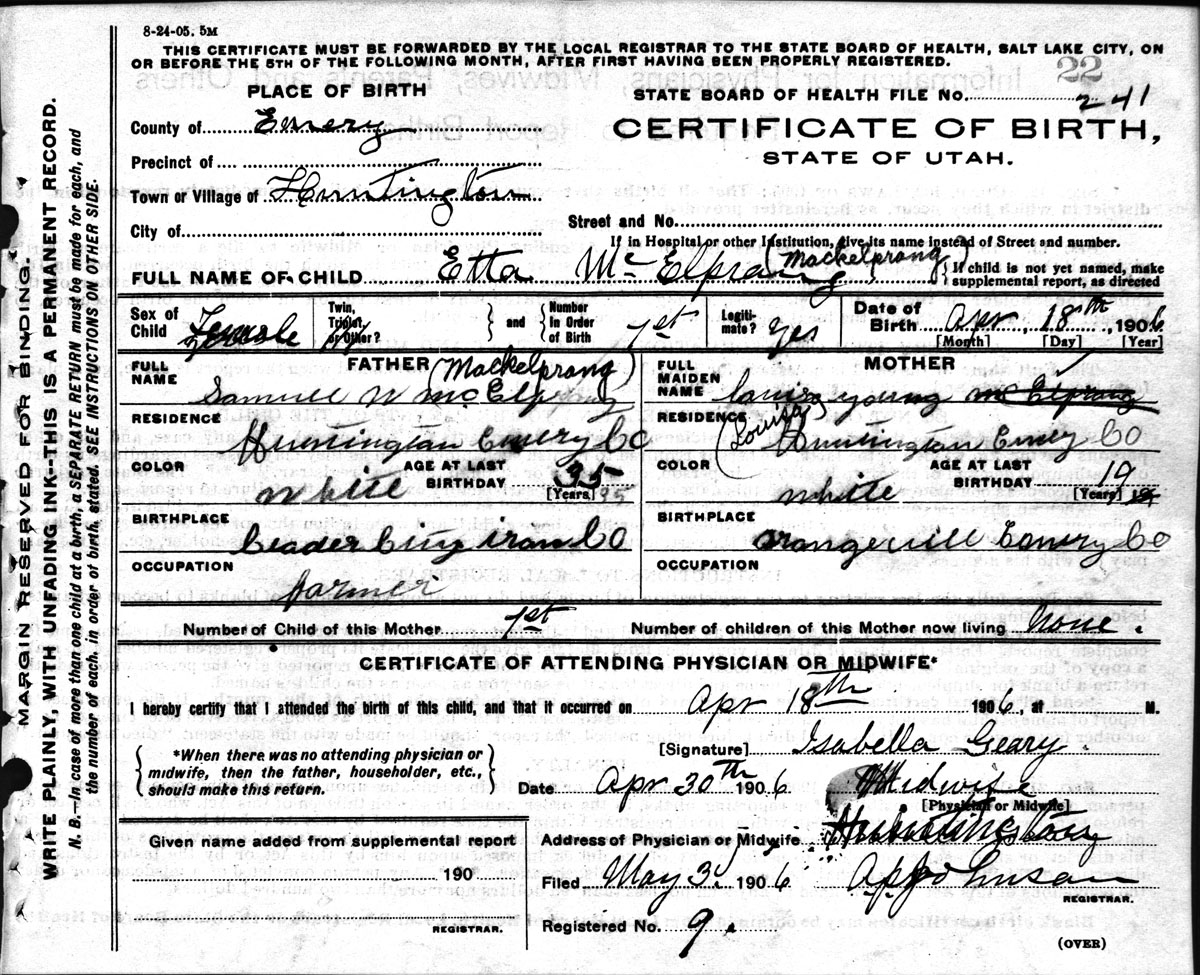 8-24-05. 5M
THIS CERTIFICATE MUST BE FORWARDED BY THE LOCAL REGISTRAR TO THE STATE BOARD OF HEALTH, SALT LAKE CITY, ON
OR BEFORE THE 5TH OF THE FOLLOWING MONTH, AFTER FIRST HAVING BEEN PROPERLY REGISTERED.
22
PLACE OF BIRTH
STATE BOARD OF HEALTH FILE No. 241
County of Emery
CERTIFICATE OF BIRTH,
STATE OF UTAH.
Precinct of
Town or Village of Huntington
City of
Street and No.
If in Hospital or other Institution, give its name instead of Street and number.
FULL NAME OF CHILD Etta McElprang (Mackelprang)
If child is not yet named, make
supplemental report, as directed
Sex of Child Female
Twin, Triplet, or Other?
and
Number in Order of Birth 1st
Legitimate? Yes
Date of Birth Apr 18th, 1906
[Month] [Day] [Year]
FATHER
FULL NAME Samuel W McElprang (Mackelprang)
RESIDENCE
Huntington Emery Co
COLOR White
AGE AT LAST BIRTHDAY 35
[Years] 35
BIRTHPLACE
Ceader City iron Co
OCCUPATION
farmer
MOTHER
FULL MAIDEN NAME Louisa young McElprang
(Louisa)
RESIDENCE
Huntington Emery Co
COLOR White
AGE AT LAST BIRTHDAY 19
[Years] 19
BIRTHPLACE
orangevill Emery Co
OCCUPATION
Number of Child of this Mother 1st
Number of children of this Mother now living None.
CERTIFICATE OF ATTENDING PHYSICIAN OR MIDWIFE*
I hereby certify that I attended the birth of this child, and that it occurred on Apr 18th 1906, at M.
*When there was no attending physician or
midwife, then the father, householder, etc.,
should make this return.
[Signature] Isabella Geary.
Date Apr 30th 1906
Midwife
[Physician or Midwife]
Given name added from supplemental report
190
REGISTRAR.
Address of Physician or Midwife Huntington
Filed May 3, 1906
REGISTRAR.
Registered No. 9.
(OVER)
MARGIN RESERVED FOR BINDING.
WRITE PLAINLY, WITH UNFADING INK--THIS IS A PERMANENT RECORD.
N. B.--In case of more than one child at a birth, a SEPARATE RETURN must be made for each, and
the number of each, in order of birth, stated. SEE INSTRUCTIONS ON OTHER SIDE.